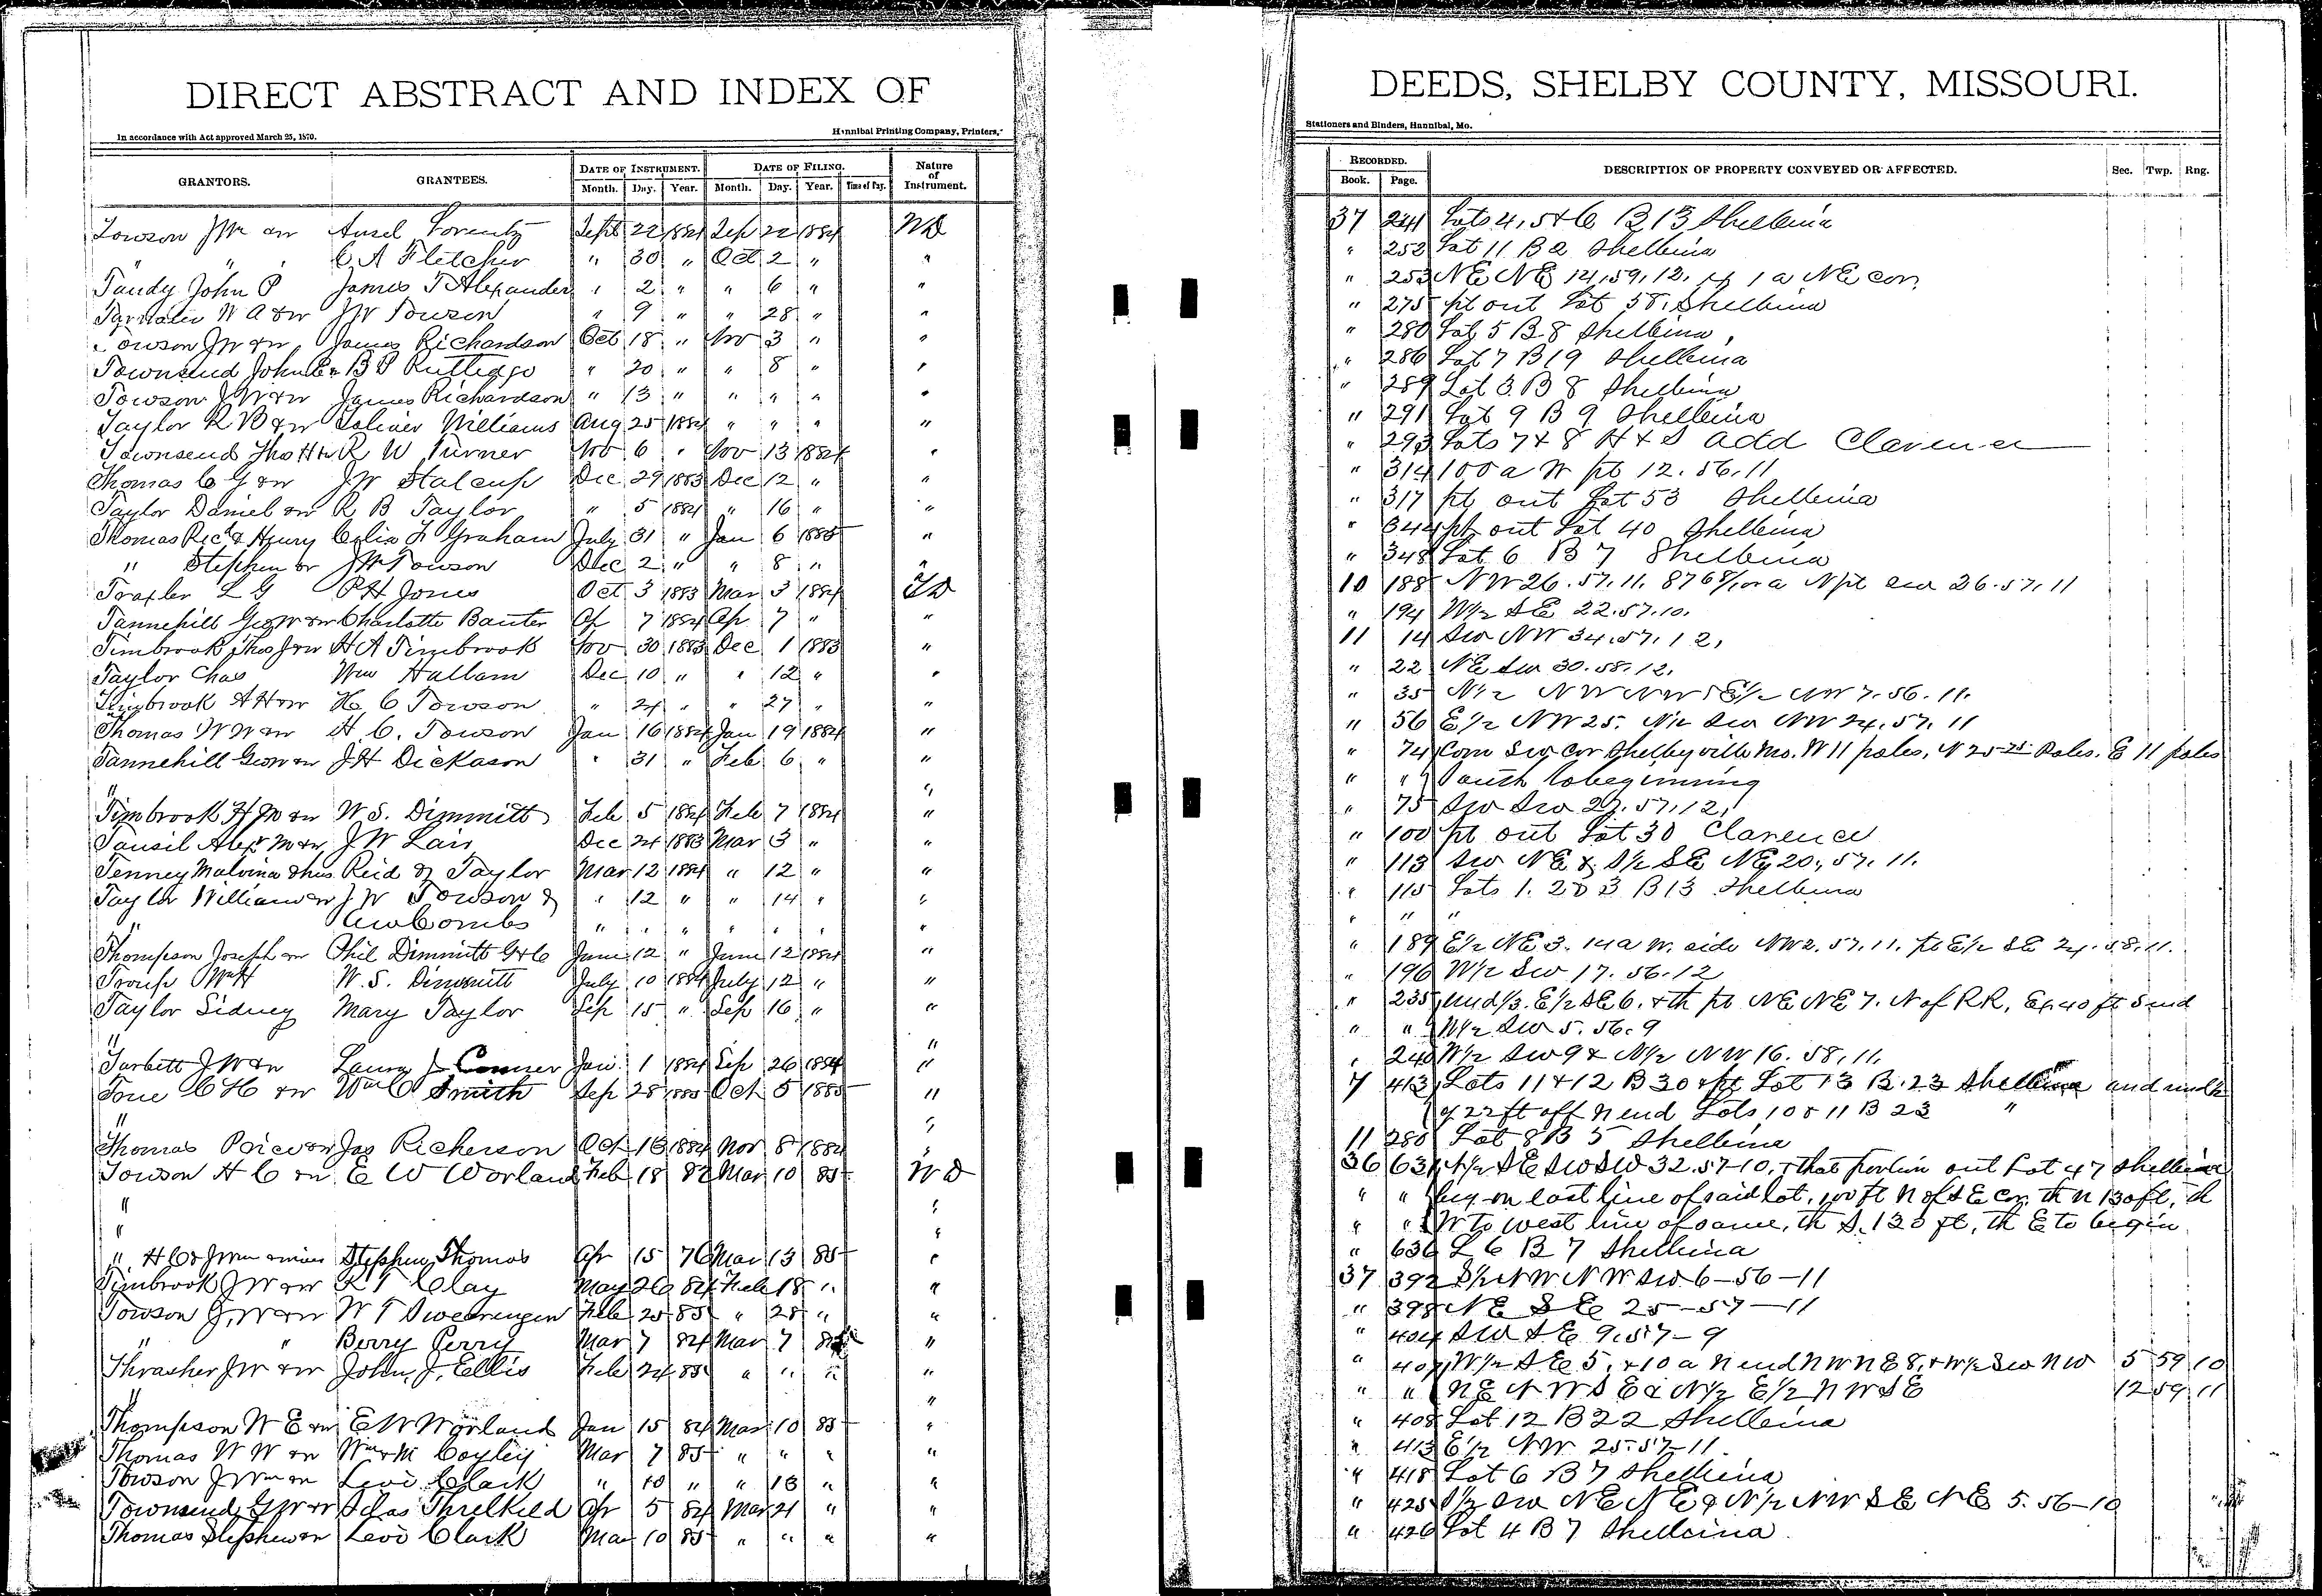 DIRECT ABSTRACT AND INDEX OF
In accordance with Act approved March 25, 1870.
Hannibal Printing Company, Printers,
GRANTORS. GRANTEES. DATE OF INSTRUMENT. DATE OF FILING. Nature of Instrument.
Month. Day. Year. Month. Day. Year. Time of Day.
Towson J Wm & w Ansel Lorentz Sept 22 1884 Sep 22 1884 WD
" " C. A Fletcher " 30 " Oct 2 " "
Tandy John P James T Alexander " 2 " " 6 " "
W A & w J W Towson " 9 " " 28 " "
Towson J W & w James Richardson Oct 18 " Nov 3 " "
Townsend John B P Rutledge " 20 " " 8 " "
Towson J W & w James Richardson " 13 " " " " "
Taylor R B & w Williams Aug 25 1884 " " " "
Townsend Tho H & w R W Turner Nov 6 " Nov 13 1884 "
Thomas C G & w J W Stalcup Dec 29 1883 Dec 12 " "
Taylor Daniel & w R B Taylor " 5 1884 " 16 " "
Thomas Ricd & Henry Celia F Graham July 31 " Jan 6 1885 "
" Stephen & w J W Towson Dec 2 " " 8 " "
Traxler L G P H Jones Oct 3 1883 Mar 3 1884 TD
Tannehill Geo W & w Charlotte Banter Ap 7 1884 Ap 7 " "
Timbrook Thos J & w H A Timbrook Nov 30 1883 Dec 1 1883 "
Taylor Chas Wm Hallam Dec 10 " " 12 " "
Timbrook A H & w H. C Towson " 24 " " 27 " "
Thomas W W & w H. C. Towson Jan 16 1884 Jan 19 1884 "
Tannehill Geo W & w J H Dickason " 31 " Feb 6 " "
" "
Timbrook H M & w W. S. Dimmitt Feb 5 1884 Feb 7 1884 "
Tansil Alex M & w J W Lair Dec 24 1883 Mar 3 " "
Tenney Malvina & hus Reid & Taylor Mar 12 1884 " 12 " "
Taylor William & w J W Towson & " 12 " " 14 " "
" Newcombs " " " " " " "
Thompson Joseph & w Phil Dimmitt G & Co June 12 " June 12 1884 "
Troup Wm H W. S. Dimmitt July 10 1884 July 12 " "
Taylor Sidney Mary Taylor Sep 15 " Sep 16 " "
" "
Tarbett J W & w Laura J Conner Jan 1 1884 Sep 26 1884 "
Tone C H & w Wm C Smith Sep 28 1885 Oct 5 1885 "
" "
Thomas Price & w Jas Richerson Oct 18 1884 Nov 8 1884 "
Towson H C & w E W Worland Feb 18 82 Mar 10 85 WD
" "
" "
" H C & J Wm & wives Stephen Thomas Apr 15 76 Mar 13 85 "
Timbrook J W & w R T Clay May 26 84 Feb 18 " "
Towson J. W & w W T Swearengen Feb 25 85 " 28 " "
" " Berry Perry Mar 7 84 Mar 7 "
Thrasher J W & w John J. Ellis Feb 24 85 " " " "
" "
Thompson W E & w E W Worland Jan 15 84 Mar 10 85 "
Thomas W W & w Wm M Cooley Mar 7 85 " " " "
Towson J Wm & w Levi Clark " 10 " " 18 " "
Townsend G W & w Silas Threlkeld Apr 5 84 Mar 21 " "
Thomas Stephen & w Levi Clark Mar 10 85 " " " "
DEEDS, SHELBY COUNTY, MISSOURI.
Stationers and Binders, Hannibal, Mo.
RECORDED. DESCRIPTION OF PROPERTY CONVEYED OR AFFECTED. Sec. Twp. Rng.
Book. Page.
37 241 Lots 4, 5 & 6 B 13 Shelbina
" 252 Lot 11 B 2 Shelbina
" 253 NE NE 14, 59, 12, 1 a NE cor,
" 275 pt out Lot 58, Shelbina
" 280 Lot 5 B 8 Shelbina,
" 286 Lot 7 B 19 Shelbina
" 289 Lot 3 B 8 Shelbina
" 291 Lot 9 B 9 Shelbina
" 293 Lots 7 & 8 H & S add Clarence
" 314 100 a W pt 12. 56. 11
" 317 pt out Lot 53 Shelbina
" 344 pt out Lot 40 Shelbina
" 348 Lot 6 B 7 Shelbina
10 188 NW 26. 57. 11, 87 68/100 a N pt SW 26. 57. 11
" 194 W 1/2 SE 22. 57. 10.
11 14 SW NW 34. 57. 12,
" 22 NE SW 30. 58. 12.
" 35 N 1/2 NW NW & E 1/2 NW 7. 56. 11.
" 56 E 1/2 NW 25. N 1/2 SW NW 24. 57. 11
" 74 Com SW cor Shelbyville Mo. W 11 poles, N 25 25 Poles. E 11 poles
" " South to beginning
" 75 SW SW 27. 57. 12,
" 100 pt out Lot 30 Clarence
" 113 SW NE & S 1/2 SE NE 20, 57. 11.
" 115 Lots 1. 2 & 3 B 13 Shelbina
" " "
" 189 E 1/2 NE 3. 14 a W. side NW 2. 57. 11. pt E 1/2 SE 24. 58. 11.
" 196 W 1/2 SW 17. 56. 12
" 235 und 1/3. E 1/2 SE 6. & th pt NE NE 7. N of RR, Ex 40 ft S end
" " W 1/2 SW 5. 56. 9
" 240 W 1/2 SW 9 & N 1/2 NW 16. 58. 11.
7 413 Lots 11 & 12 B 30 & pt Lot 13 B. 23 Shelbina and
of 22 ft off N end Lots 10 & 11 B 23 "
11 280 Lot 8 B 5 Shelbina
36 631 N 1/2 SE SW SW 32. 57-10, & that portion out Lot 47 Shelbina
" " beg on east line of said lot, 100 ft N of SE cor. th N 130 ft, th
" " W to west line of same, th S. 130 ft, th E to begin
" 636 L 6 B 7 Shelbina
37 392 S 1/2 NW NW SW 6-56-11
" 398 NE SE 25-57-11
" 404 SW SE 9, 57-9
" 407 W 1/2 SE 5, & 10 a N end NW NE 8, & W 1/2 SW NW 5 59 10
" " NE NW SE & N 1/2 E 1/2 NW SE 12 59 11
" 408 Lot 12 B 22 Shelbina
" 413 E 1/2 NW 25-57-11.
" 418 Lot 6 B 7 Shelbina
" 425 S 1/2 SW NE NE & N 1/2 NW SE NE 5. 56-10
" 426 Lot 4 B 7 Shelbina